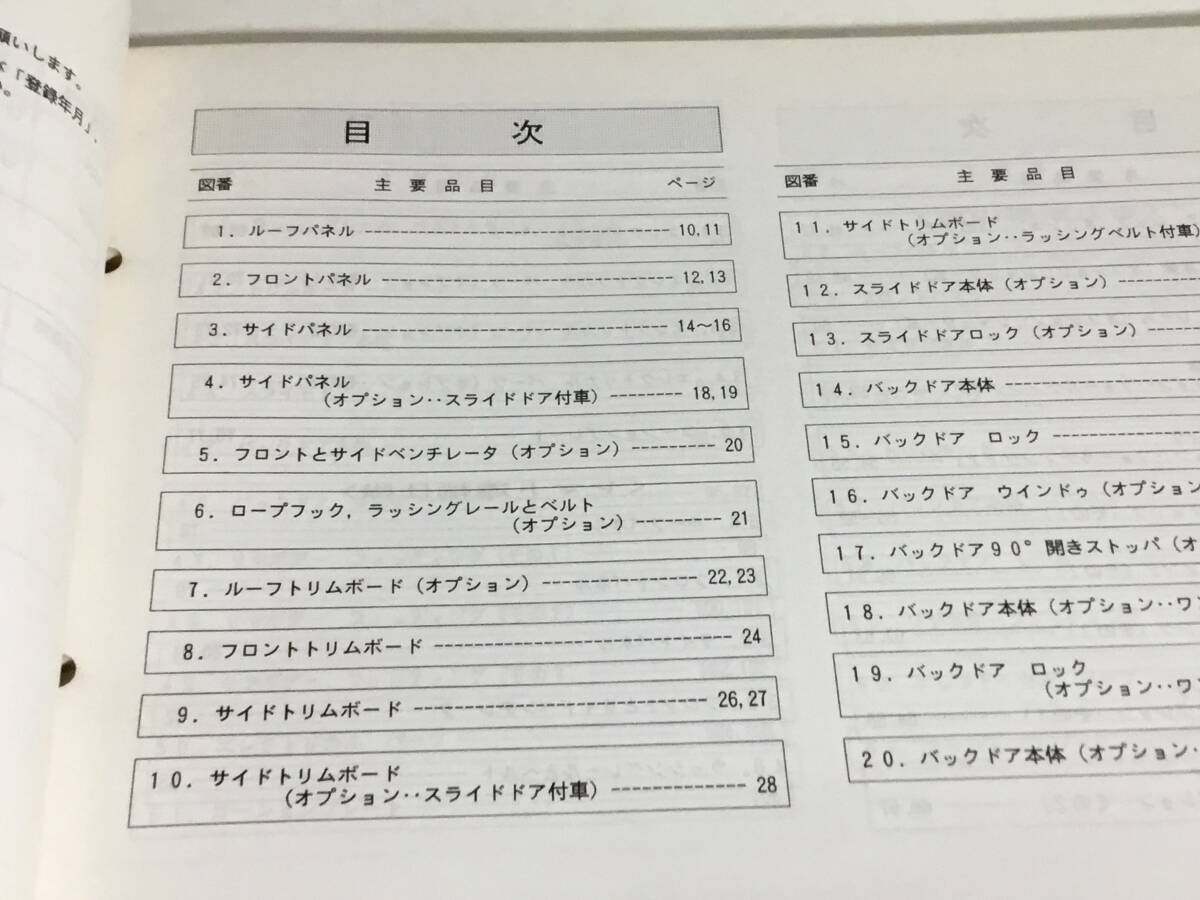 願いします。
「登録年月」、
目 次
図番 主 要 品 目 ページ
1. ルーフパネル ---------- 10,11
2. フロントパネル ---------- 12,13
3. サイドパネル ---------- 14〜16
4. サイドパネル
(オプション‥スライドドア付車) ---------- 18,19
5. フロントとサイドベンチレータ (オプション) ---------- 20
6. ロープフック, ラッシングレールとベルト
(オプション) ---------- 21
7. ルーフトリムボード (オプション) ---------- 22,23
8. フロントトリムボード ---------- 24
9. サイドトリムボード ---------- 26,27
10. サイドトリムボード
(オプション‥スライドドア付車) ---------- 28
目 次
図番 主 要 品 目
11. サイドトリムボード
(オプション‥ラッシングベルト付車)
12. スライドドア本体 (オプション) ----------
13. スライドドアロック (オプション) ----------
14. バックドア本体 ----------
15. バックドア ロック ----------
16. バックドア ウインドゥ (オプション
17. バックドア90°開きストッパ (オ
18. バックドア本体 (オプション‥ワ
19. バックドア ロック
(オプション‥ワ
20. バックドア本体 (オプション‥